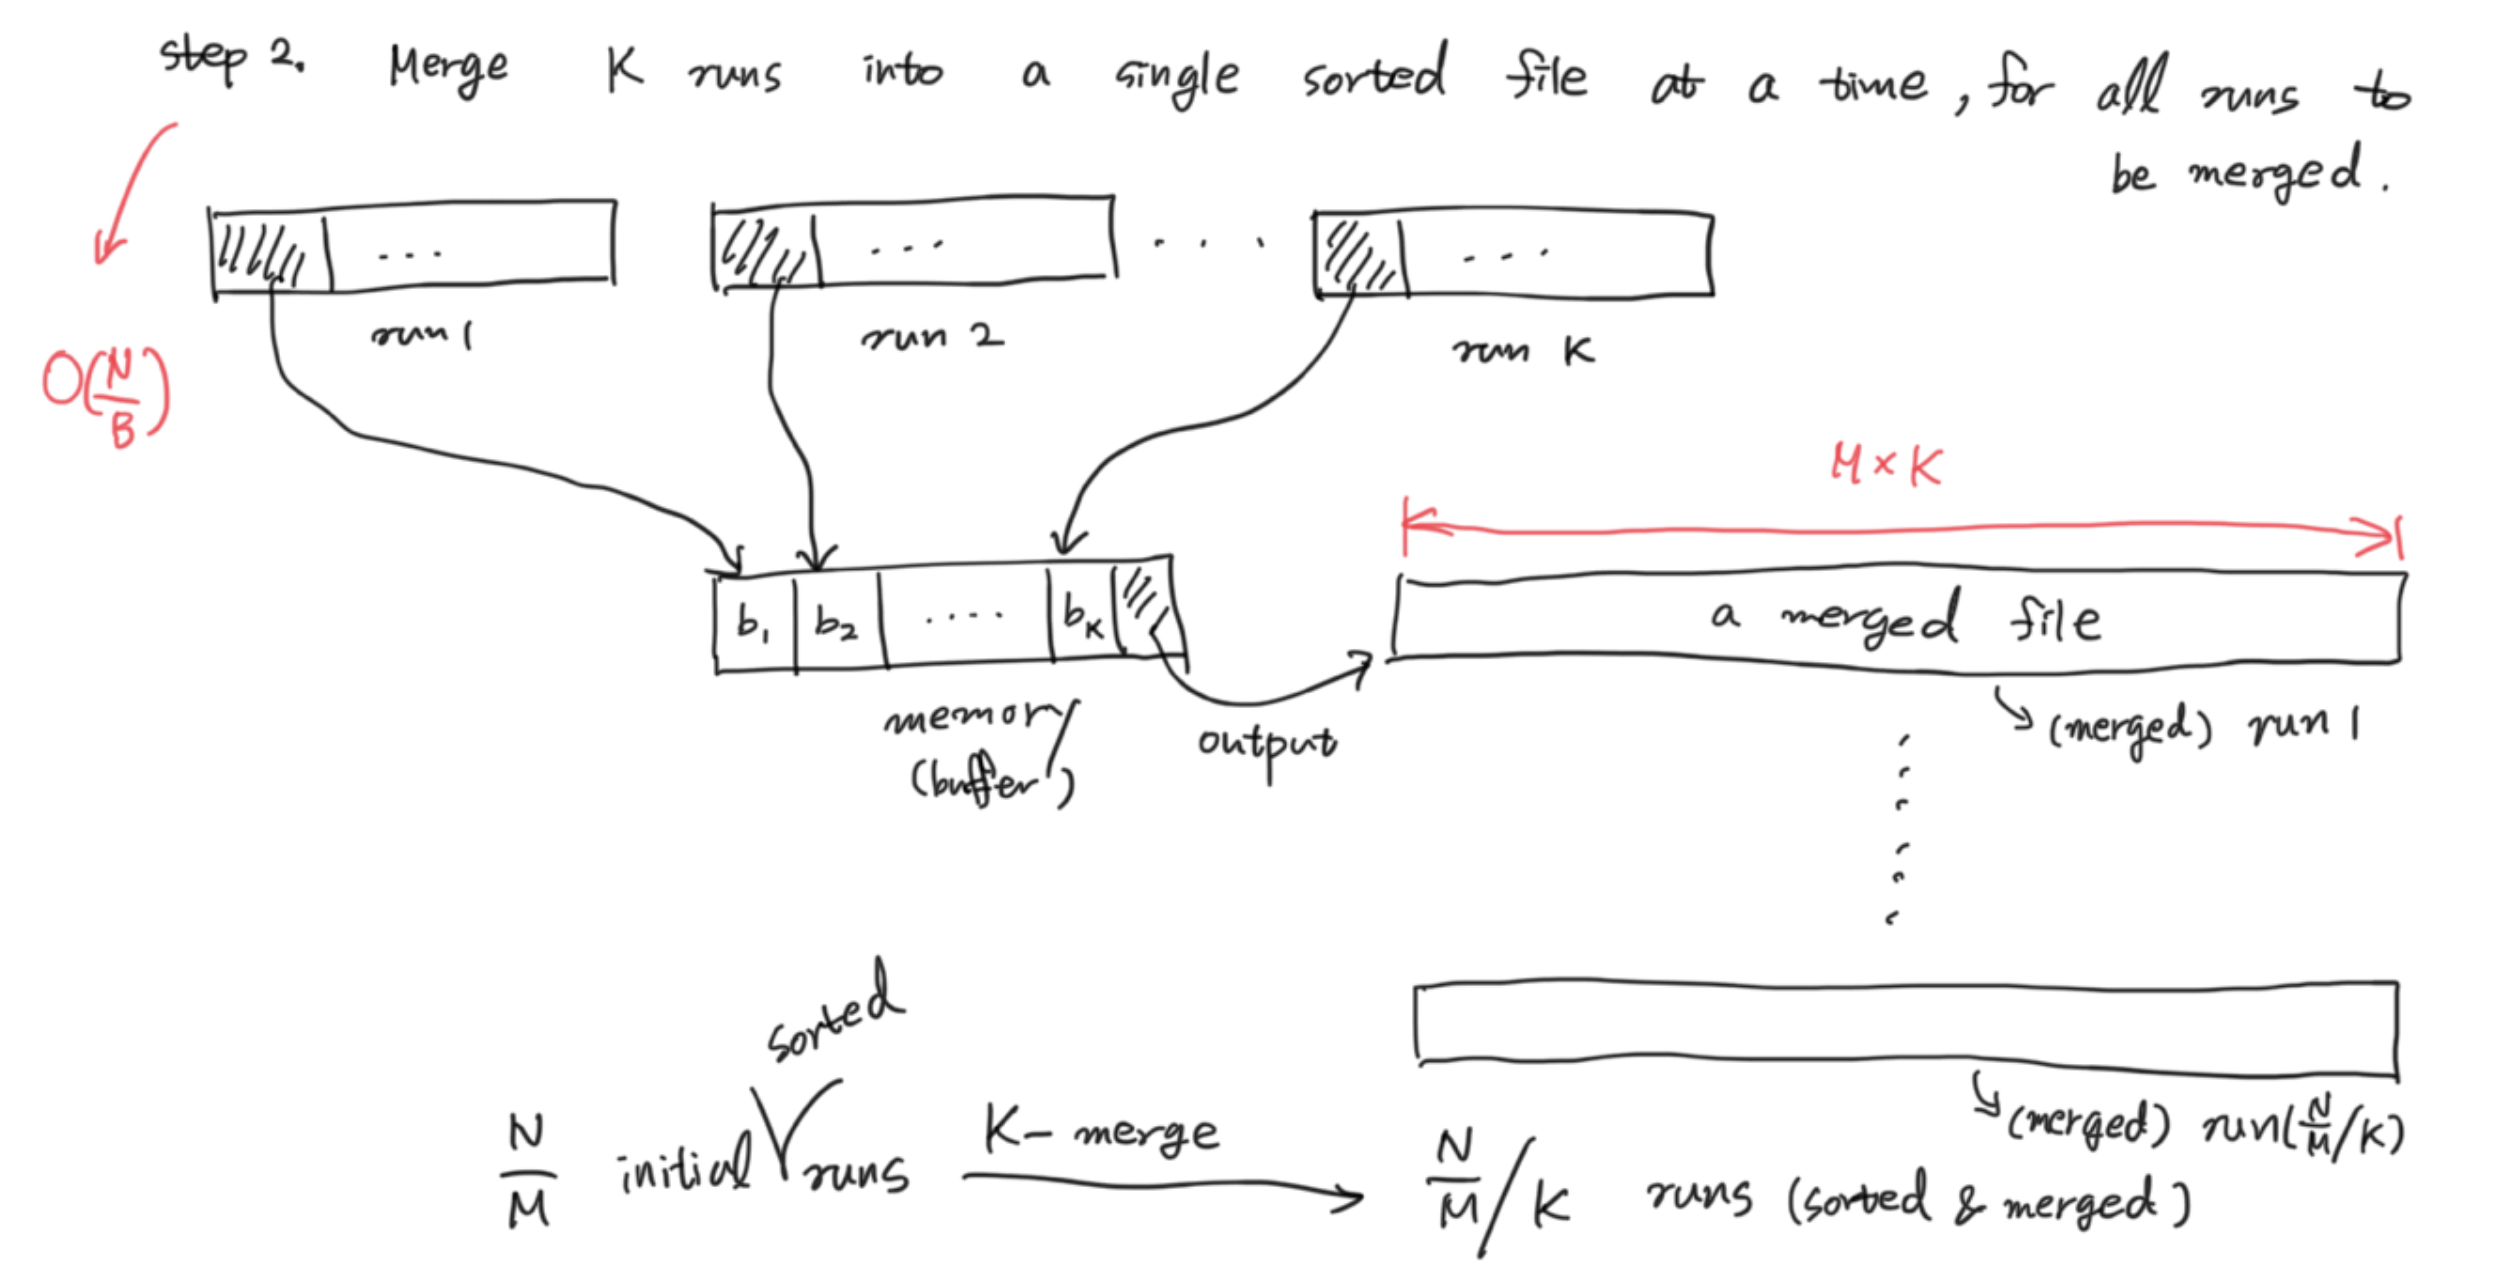 step 2. Merge K runs into a single sorted file at a time, for all runs to
be merged.
run 1
run 2
run K
O(N/B)
M × K
b1 b2 .... bK
a merged file
memory
(buffer)
output
(merged) run 1
sorted
N/M initial runs
K-merge
(merged) run(N/M/K)
N/M/K runs (sorted & merged)